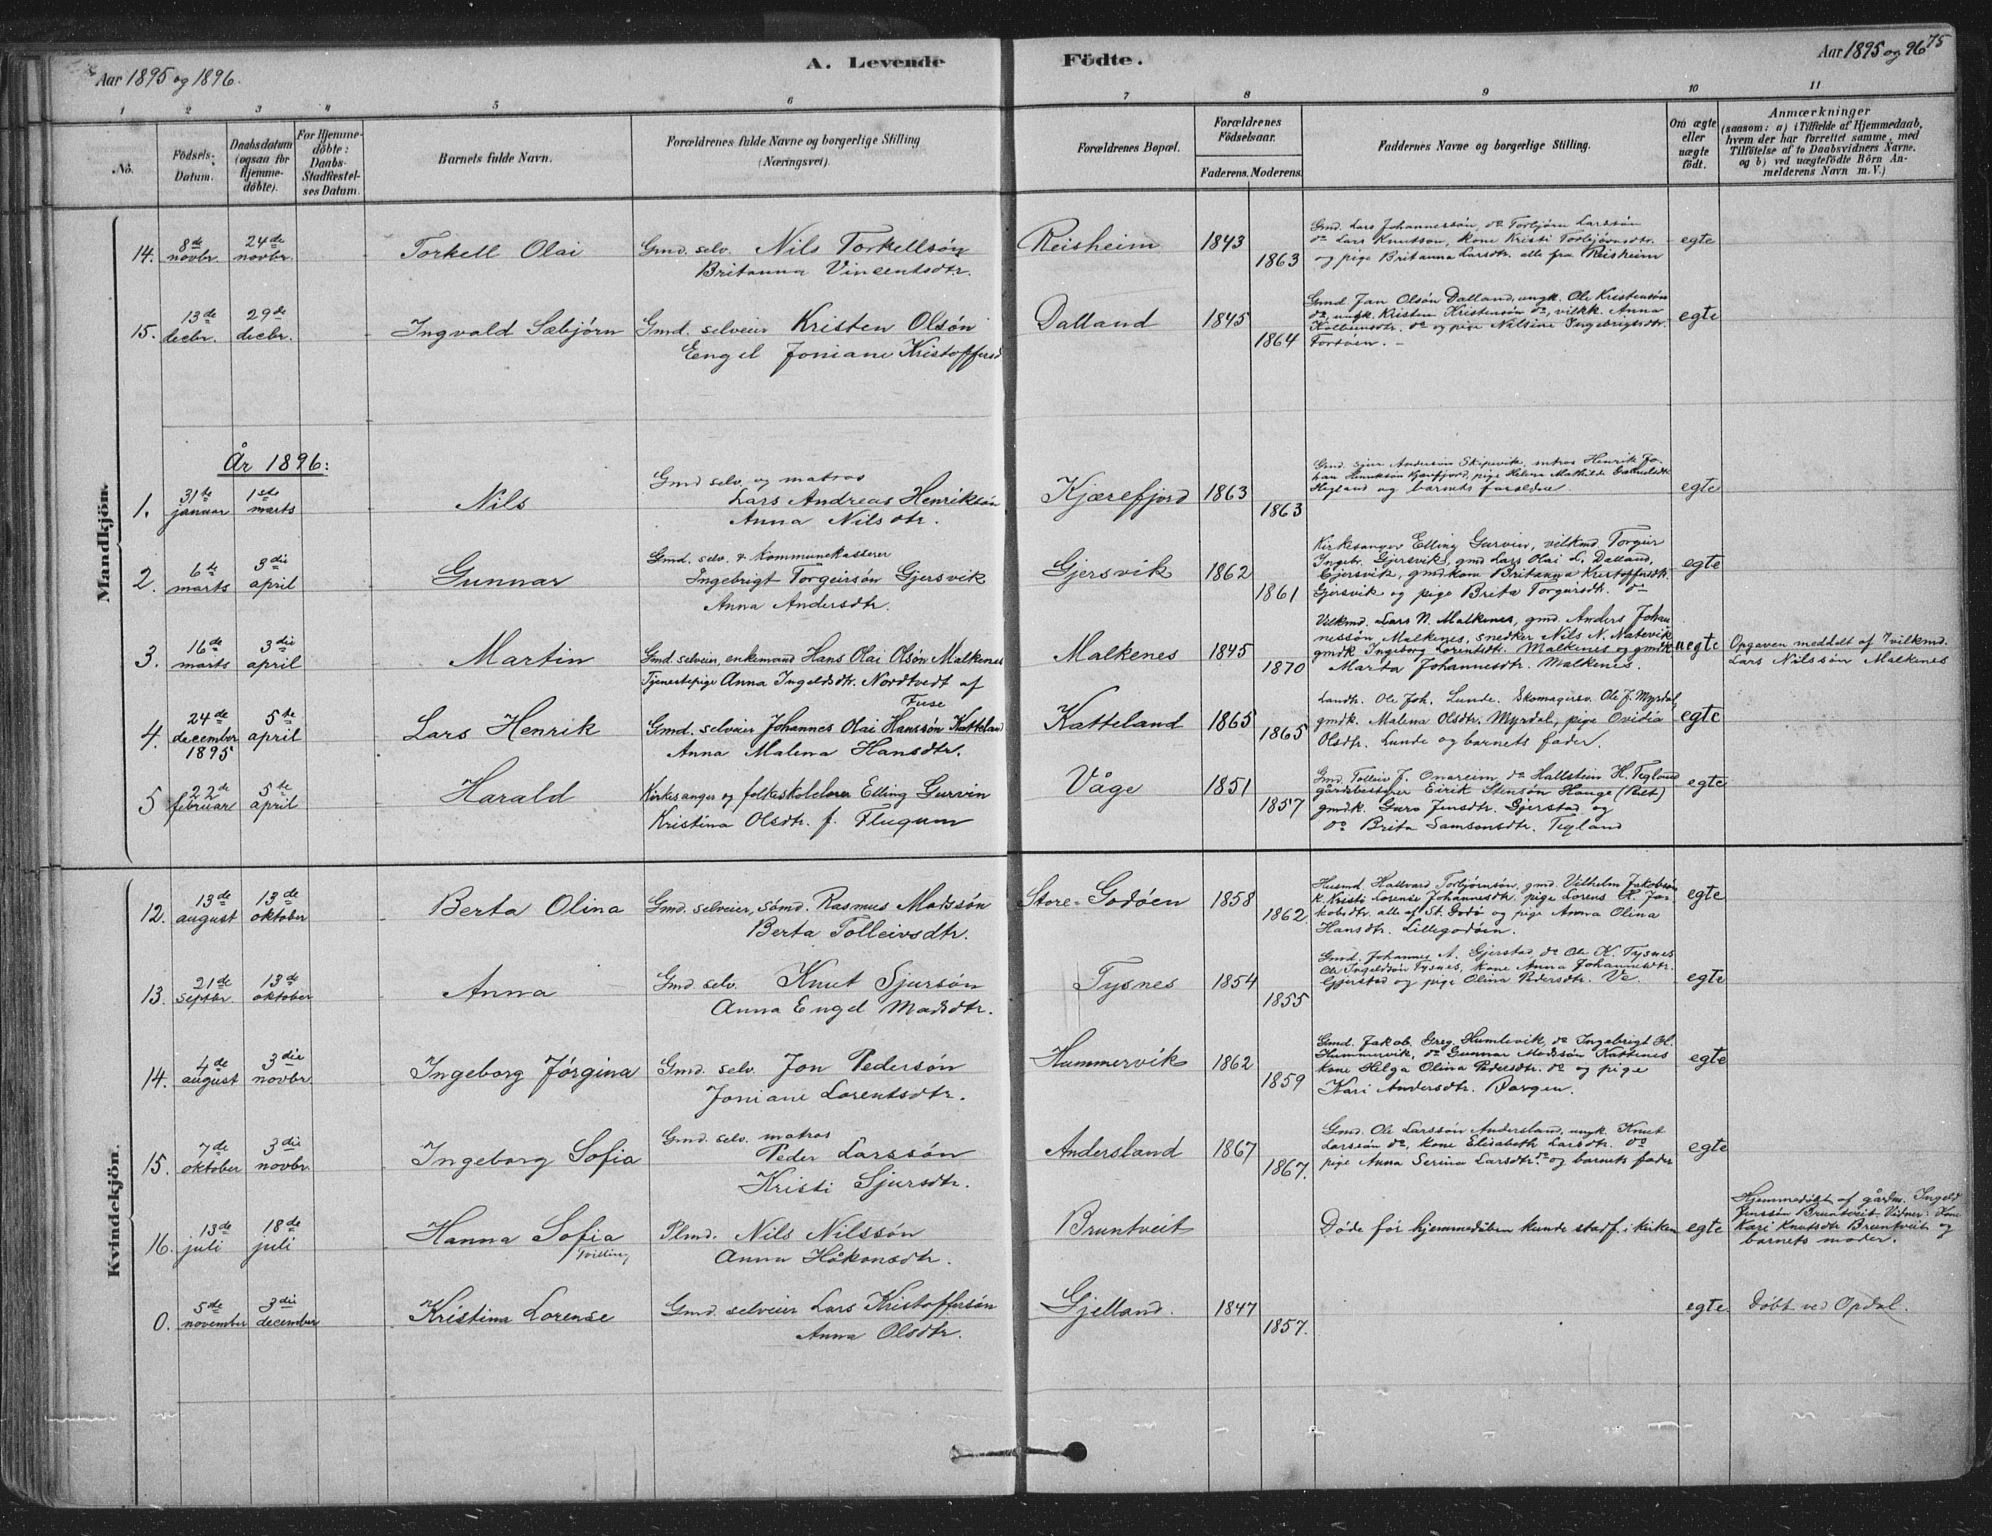 Aar 1895 og 1896.
A. Levende Födte.
Aar 1895 og 96
75
1 2 3 4 5 6 7 8 9 10 11
No.
Födsels-Datum.
Daabsdatum (ogsaa for Hjemme-döbte).
For Hjemme-döbte: Daabs-Stadfæstel-ses Datum.
Barnets fulde Navn.
Forældrenes fulde Navne og borgerlige Stilling (Næringsvei).
Forældrenes Bopæl.
Forældrenes Födselsaar.
Faderens. Moderens.
Faddernes Navne og borgerlige Stilling.
Om ægte eller uægte födt.
Anmærkninger
(saasom: a) i Tilfælde af Hjemmedaab, hvem der har forrettet samme, med Tilföielse af to Daabsvidners Navne, og b) ved uægtefödte Börn An-melderens Navn m. V.)
Mandkjön.
14. 8de novbr. 24de novbr. Torkell Olai Gmd. selv. Nils Torkellsön
Britanna Vincentsdtr. Reisheim 1843 1863
Gmd. Lars Johannessön, do Torbjörn Larssön
do Lars Knutson, kone Kristi Torbjörnsdtr.
og pige Britanna Larsdtr. alle fra Reisheim egte
15. 13de decbr. 29de decbr. Ingvald Sæbjörn Gmd. selveier Kristen Olsön
Engel Joniane Kristoffersd Dalland 1845 1864
Gmd. Jan Olsön Dalland, ungk. Ole Kristensön
do, ungk. Kristen Kristensön do, vilkk. Anna
Kolbeinsdtr. do og pige Nilsine Ingebrigtsdtr. egte
År 1896:
1. 31te januar 1ste marts Nils Gmd selv. og matros
Lars Andreas Henriksön
Anna Nilsdtr. Kjærefjord 1863 1863
og barnets forældre egte
2. 6te marts 3die april Gunnar Gmd. selv. & kommunekasserer
Ingebrigt Torgeirsön Gjersvik
Anna Andersdtr. Gjersvik 1862 1861
Kirkesanger Elling Gurvin, vilkmd. Torgeir
Ingebr. Gjersvik, gmd Lars Olai L. Dalland,
Gjersvik, gmdkone Britanna Kristoffersdtr.
Gjersvik og pige Brita Torgeirsdtr. do egte
3. 16de marts 3die april Martin Gmd. selveier, enkemand Hans Olai Olsön Malkenes
Tjenestepige Anna Ingeldsdtr. Nordtvedt af
Fuse Malkenes 1845 1870
Vilkmd. Lars N. Malkenes, gmd. Anders Johan
nessön Malkenes, snedker Nils N. Natevik
gmdk Ingeborg Lorentsdtr. Malkenes og gmdk
Marta Johannesdtr. Malkenes. uegte
Opgaven meddelt af vilkmd.
Lars Nilssön Malkenes
4. 24de december 1895 5te april Lars Henrik Gmd. selveier Johannes Olai Hanssön Katteland
Anna Malena Hansdtr. Katteland 1865 1865
Landh. Ole Joh. Lunde. Skomagersv. Ole J. Myrdal,
gmdk. Malena Olsdtr. Myrdal, pige Ovidia
Olsdtr. Lunde og barnets fader. egte
5 22de februar 5te april Harald Kirkesanger og folkeskolelærer Elling Gurvin
Kristina Olsdtr. f. Flugum Våge 1851 1857
Gmd. Tolleiv J. Onareim, do Hallstein H. Tegland
gårdsbestyrer Eirik Stensön Hauge
gmdk. Guro Jensdtr. Gjerstad og
do Brita Samsonsdtr. Tegland egte
Kvindekjön.
12. 13de august 13de oktober Berta Olina Gmd. selveier, sömd. Rasmus Madssön
Berta Tolleivsdtr. Store-Godöen 1858 1862
Husmd. Hallvard Torbjörnsön, gmd. Vilhelm Jakobsön
k. Kristi Lorense Johannesdtr. pige Lorens H. Ja-
kobsdtr. alle af St. Godö og pige Anna Olina
Hansdtr. Lillegodöen. egte
13. 21de septbr 13de oktober Anna Gmd selv. Knut Sjursön
Anna Engel Madsdtr. Tysnes 1854 1855
Gmd. Johannes A. Gjerstad, do Ole K. Tysnes
Ole Ingeldsön Tysnes, kone Anna Johannesdtr.
Gjerstad og pige Olina Pedersdtr. Ve. egte
14. 4de august 3die novbr Ingeborg Jörgina Gmd. selv. Jon Pedersön
Joniane Lorentsdtr. Hummervik 1862 1859
Gmd. Jakob Greg. Humlevik, do Ingebrigt H.
Hummervik, do Gunnar Madssön Kattenes
kone Helga Olina Pedersdtr. do og pige
Kari Andersdtr. Dorgen. egte
15. 7de oktober 3die novbr Ingeborg Sofia Gmd. selv. matros
Peder Larssön
Kristi Sjursdtr. Andersland 1867 1867.
Gmd. Ole Larssön Andersland, ungk. Knut
Larssön do, kone Elisabeth Larsdtr. do
pige Anna Serina Larsdtr. do og barnets fader egte
16. 13de juli 18de juli Hanna Sofia
Tvilling Plmd. Nils Nilssön
Anna Håkonsdtr. Bruntveit
Döde för hjemmedåben kunde stadf. i kirken egte
Hjemmedöbt af gårdm. Ingeld
Jenssön Bruntveit. Vidner: Kone
Kari Knutsdtr Bruntveit og
barnets moder.
0. 5de november 3die december Kristina Lorense Gmd. selveier Lars Kristoffersön
Anna Olsdtr. Gjelland. 1847 1857. egte. Döbt ved Opdal.